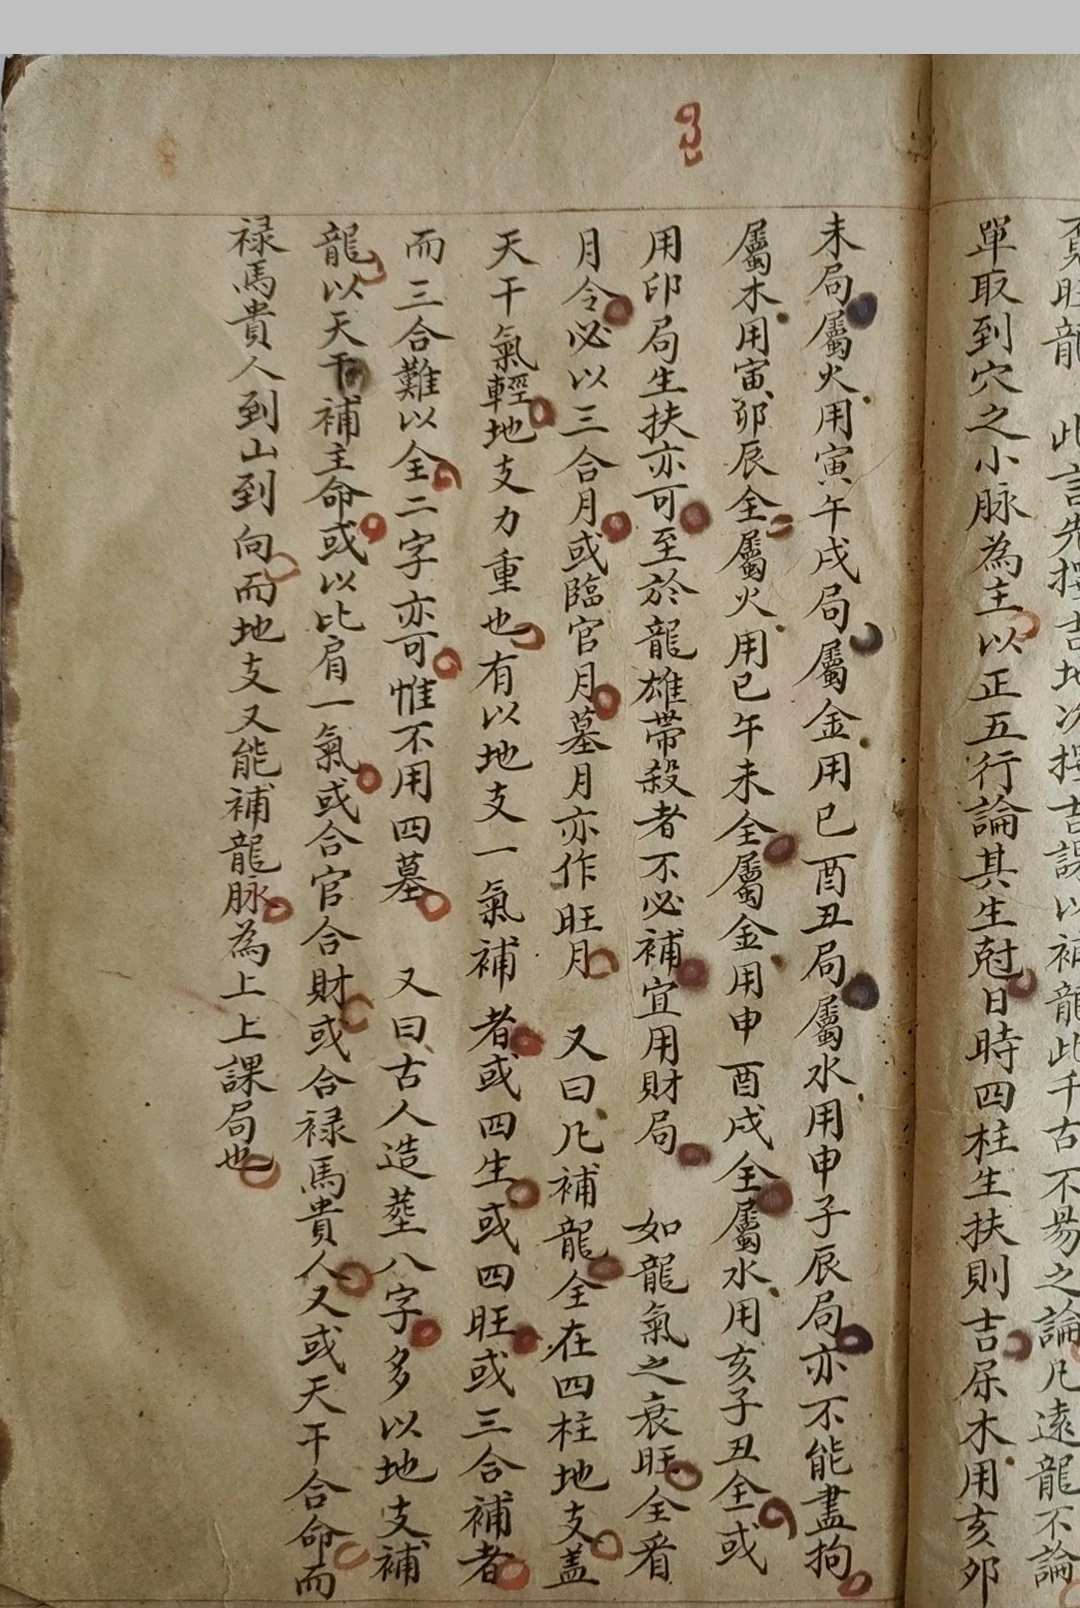 旺龍　此言先擇吉地次擇吉課以補龍此千古不易之論凡遠龍不論
單取到穴之小脉為主以正五行論其生尅日時四柱生扶則吉屎木用亥夘
未局屬火用寅午戌局屬金用巳酉丑局屬水用申子辰局亦不能盡拘
屬木用寅夘辰全屬火用巳午未全屬金用申酉戌全屬水用亥子丑全或
用印局生扶亦可至於龍雄帶殺者不必補宜用財局　如龍氣之衰旺全看
月令必以三合月或臨官月墓月亦作旺月　又曰凡補龍全在四柱地支盖
天干氣輕地支力重也有以地支一氣補者或四生或四旺或三合補者
而三合難以全二字亦可惟不用四墓　又曰古人造塟八字多以地支補
龍以天干補主命或以比肩一氣或合官合財或合禄馬貴人又或天干合命而
禄馬貴人到山到向而地支又能補龍脉為上上課局也